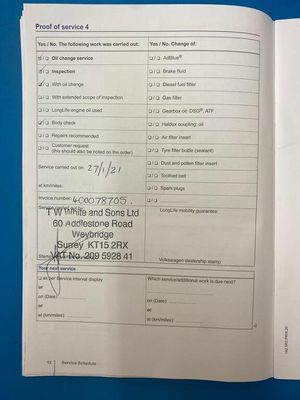 Proof of service 4
Yes / No. The following work was carried out:
Oil change service
Inspection
With oil change
With extended scope of inspection
LongLife engine oil used
Body check
Repairs recommended
Customer request
(this should also be noted on the order)
Service carried out on: 27/1/21
at km/miles:
Invoice number: 400078705.
T W White and Sons Ltd
60 Addlestone Road
Weybridge
Surrey KT15 2RX
VAT No. 209 5928 41
Yes / No. Change of:
AdBlue®
Brake fluid
Diesel fuel filter
Gas filter
Gearbox oil: DSG®, ATF
Haldex coupling: oil
Air filter insert
Tyre filler bottle (sealant)
Dust and pollen filter insert
Toothed belt
Spark plugs
LongLife mobility guarantee:
Volkswagen dealership stamp
Your next service
as per Service interval display
or
on (Date):
or
at (km/miles):
Which service/additional work is due next?
or
on (Date):
or
at (km/miles):
12 Service Schedule